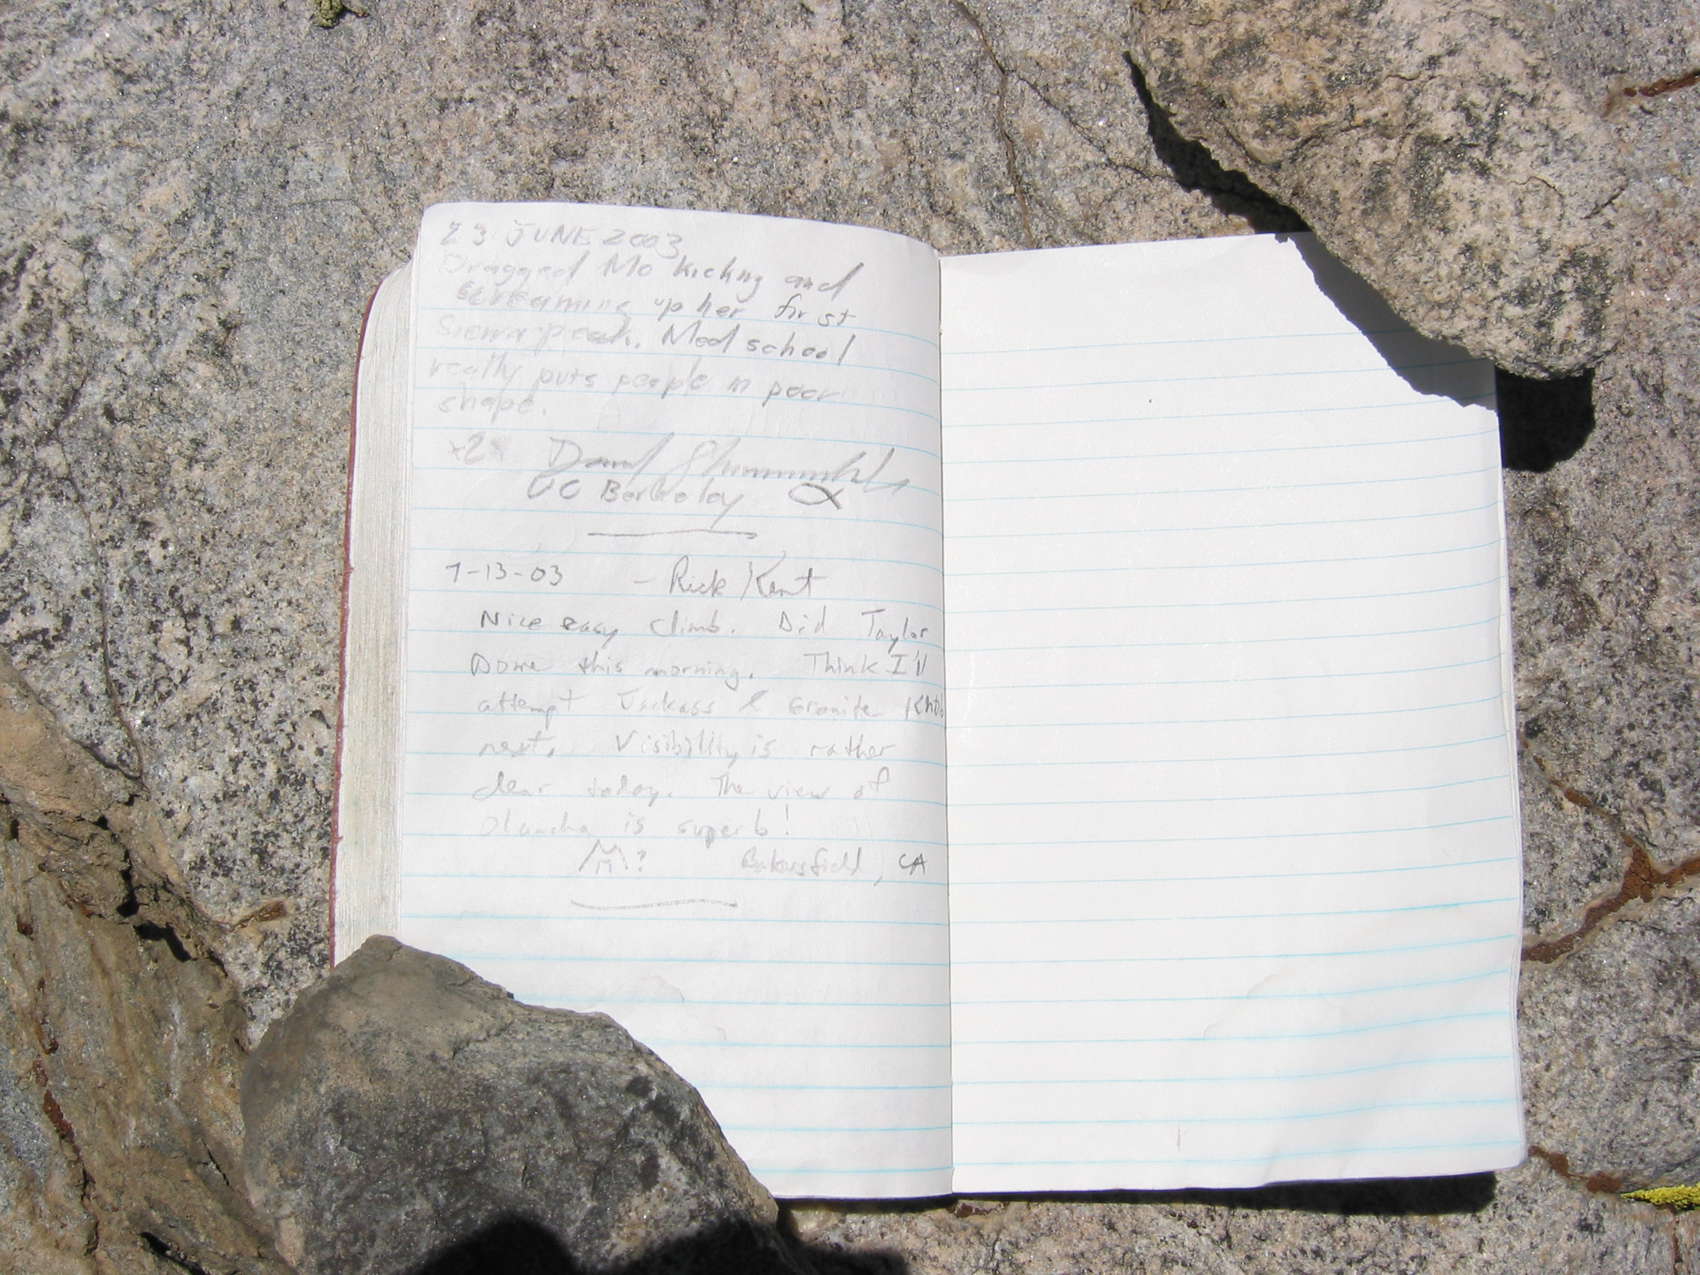 23 JUNE 2003
Dragged Mo kicking and
screaming up her first
Sierra peak. Med school
really puts people in poor
shape.
x2
UC Berkeley
7-13-03 - Rick Kent
Nice easy climb. Did Taylor
Dome this morning. Think I'll
attempt Jackass & Granite Knob
next. Visibility is rather
clear today. The view of
Olancha is superb!
Bakersfield, CA